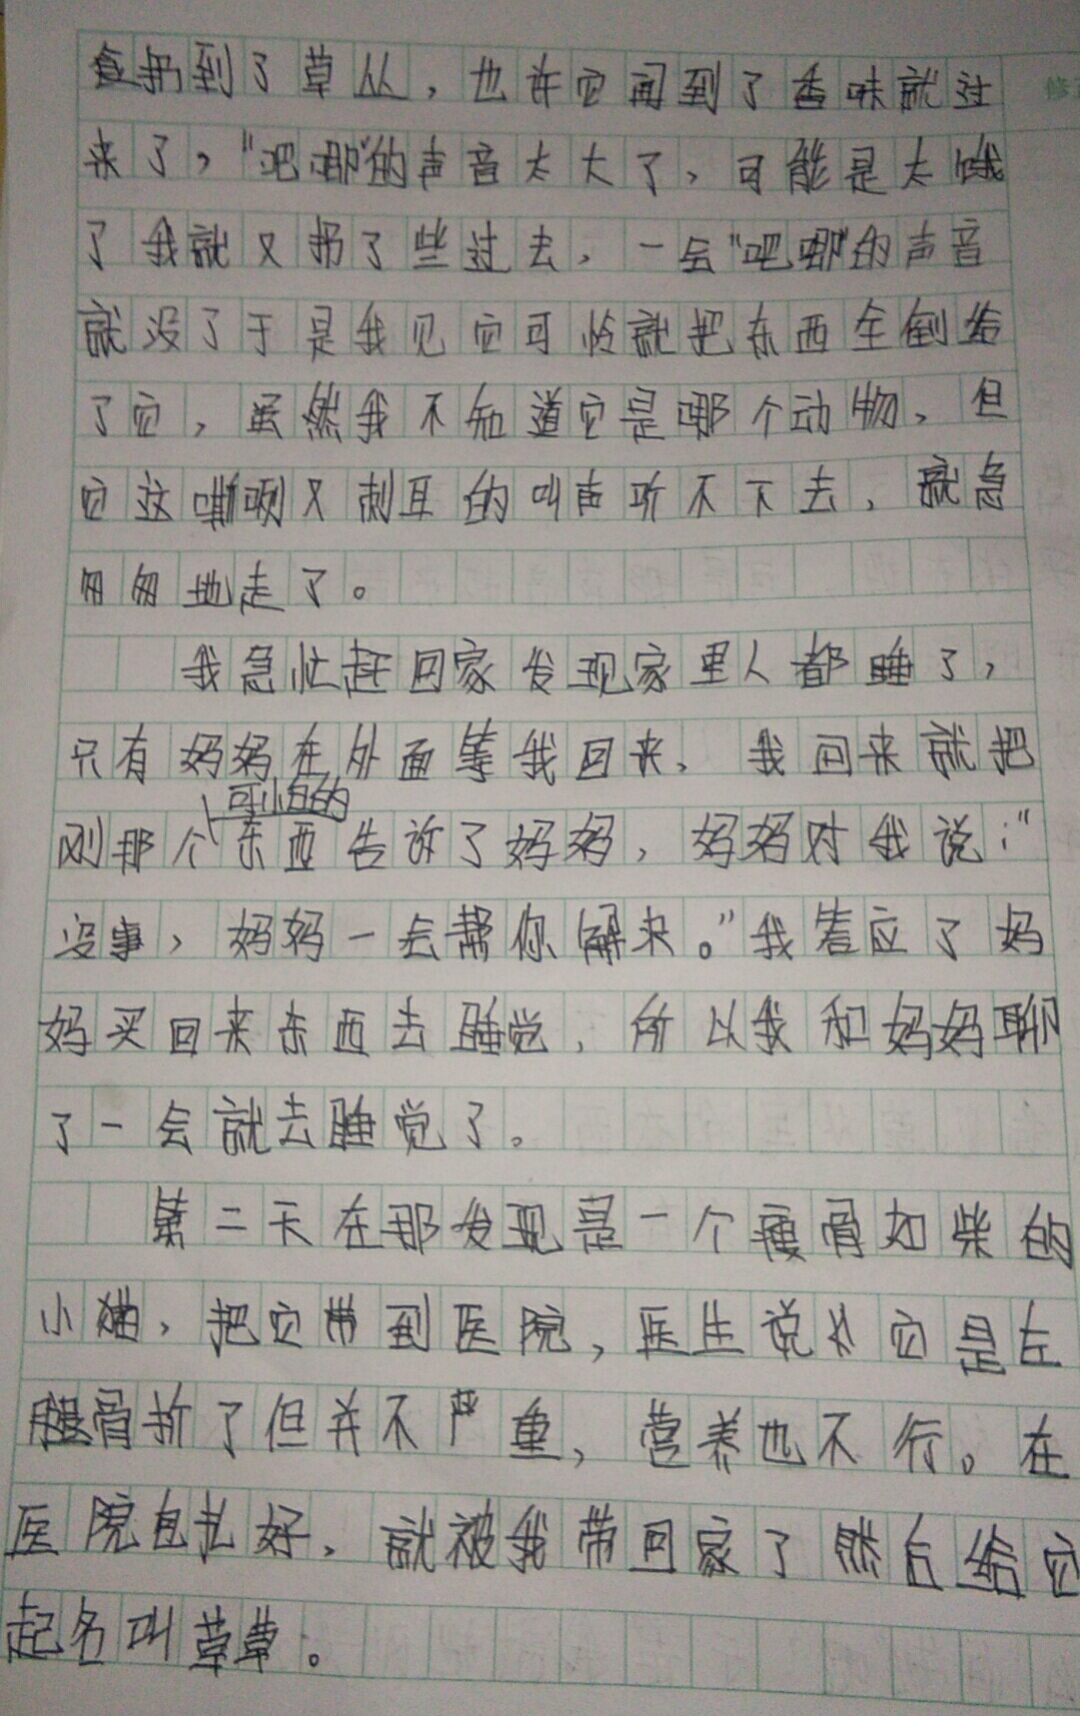 食扔到了草丛，也许它闻到了香味就过
来了，“吧唧”的声音太大了，可能是太饿
了我就又扔了些过去，一会“吧唧”的声音
就没了于是我见它可怜就把东西全倒给
了它，虽然我不知道它是哪个动物，但
它这嘶咧又刺耳的叫声听不下去，就急
匆匆地走了。
我急忙赶回家发现家里人都睡了，
只有妈妈在外面等我回来，我回来就把
刚那个可怜的东西告诉了妈妈，妈妈对我说：“
没事，妈妈一会帮你解决。”我答应了妈
妈买回来东西去睡觉，所以我和妈妈聊
了一会就去睡觉了。
第二天在那发现是一个瘦骨如柴的
小猫，把它带到医院，医生说它是左
腿骨折了但并不严重，营养也不行。在
医院包扎好，就被我带回家了然后给它
起名叫草草。